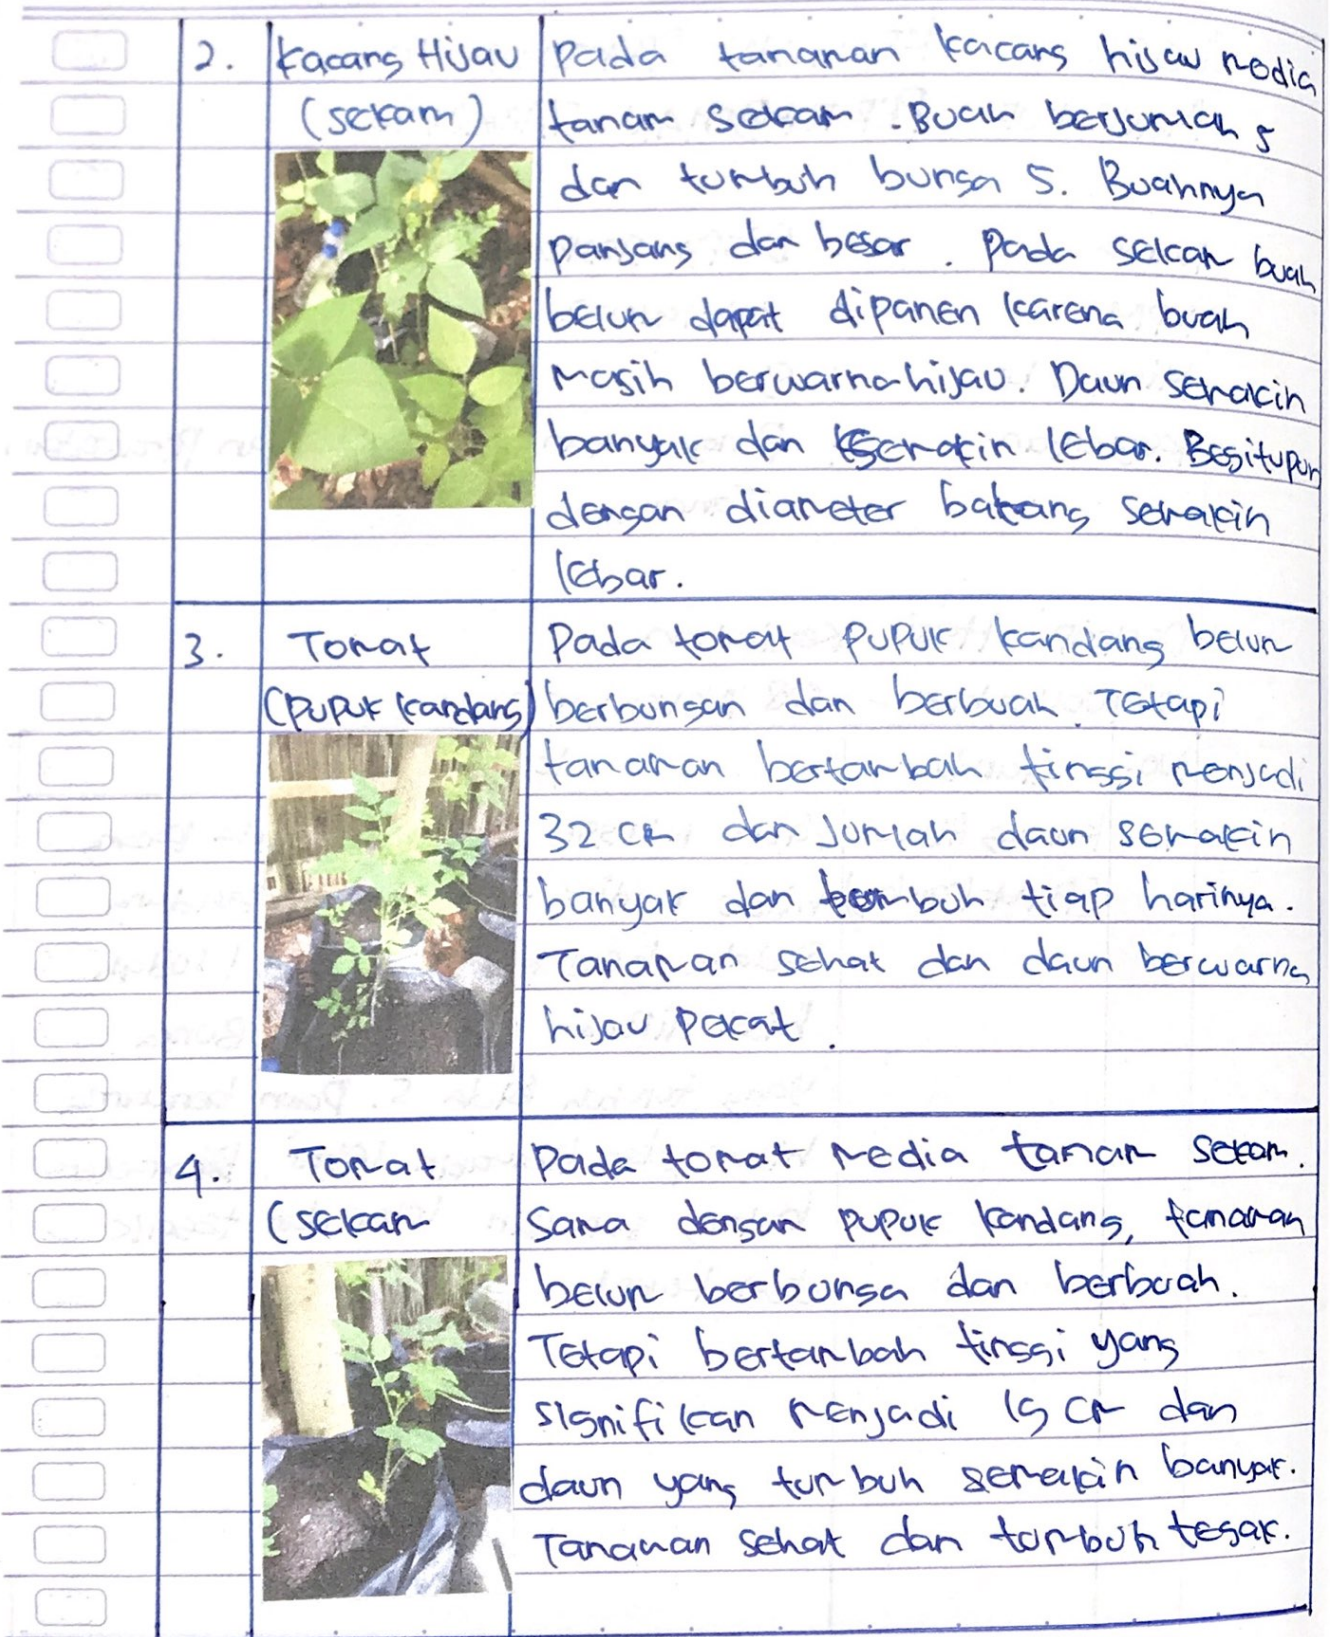 2.
Kacang Hijau
(sekam)
Pada tanaman kacang hijau media
tanam sekam. Buah berjumlah 5
dan tumbuh bunga 5. Buahnya
panjang dan besar. Pada sekam buah
belum dapat dipanen karena buah
masih berwarna hijau. Daun semakin
banyak dan semakin lebar. Begitupun
dengan diameter batang semakin
lebar.
3.
Tomat
(Pupuk kandang)
Pada tomat pupuk kandang belum
berbungan dan berbuah. Tetapi
tanaman bertambah tinggi menjadi
32 cm dan jumlah daun semakin
banyak dan tumbuh tiap harinya.
Tanaman sehat dan daun berwarna
hijau pekat.
4.
Tomat
(sekam
Pada tomat media tanam sekam.
Sama dengan pupuk kandang, tanaman
belum berbunga dan berbuah.
Tetapi bertambah tinggi yang
signifikan menjadi cm dan
daun yang tumbuh semakin banyak.
Tanaman sehat dan tumbuh tegak.